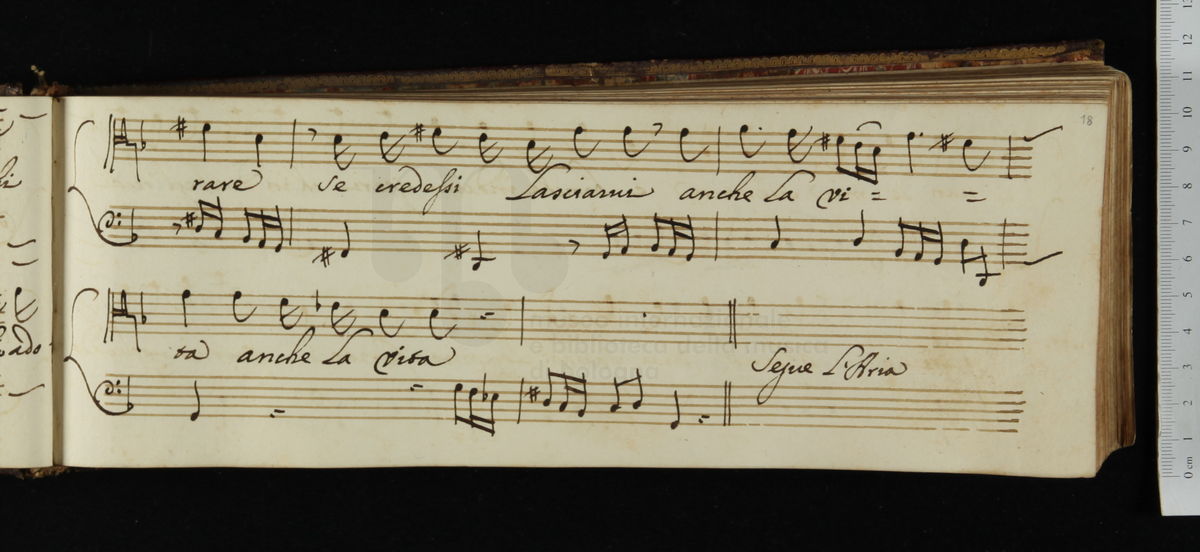 18
rare se credessi Lasciami anche La vi = =
ta anche La vita
Segue L'Aria
museo internazionale
e biblioteca della musica
di bologna
0 cm 1 2 3 4 5 6 7 8 9 10 11 12 13